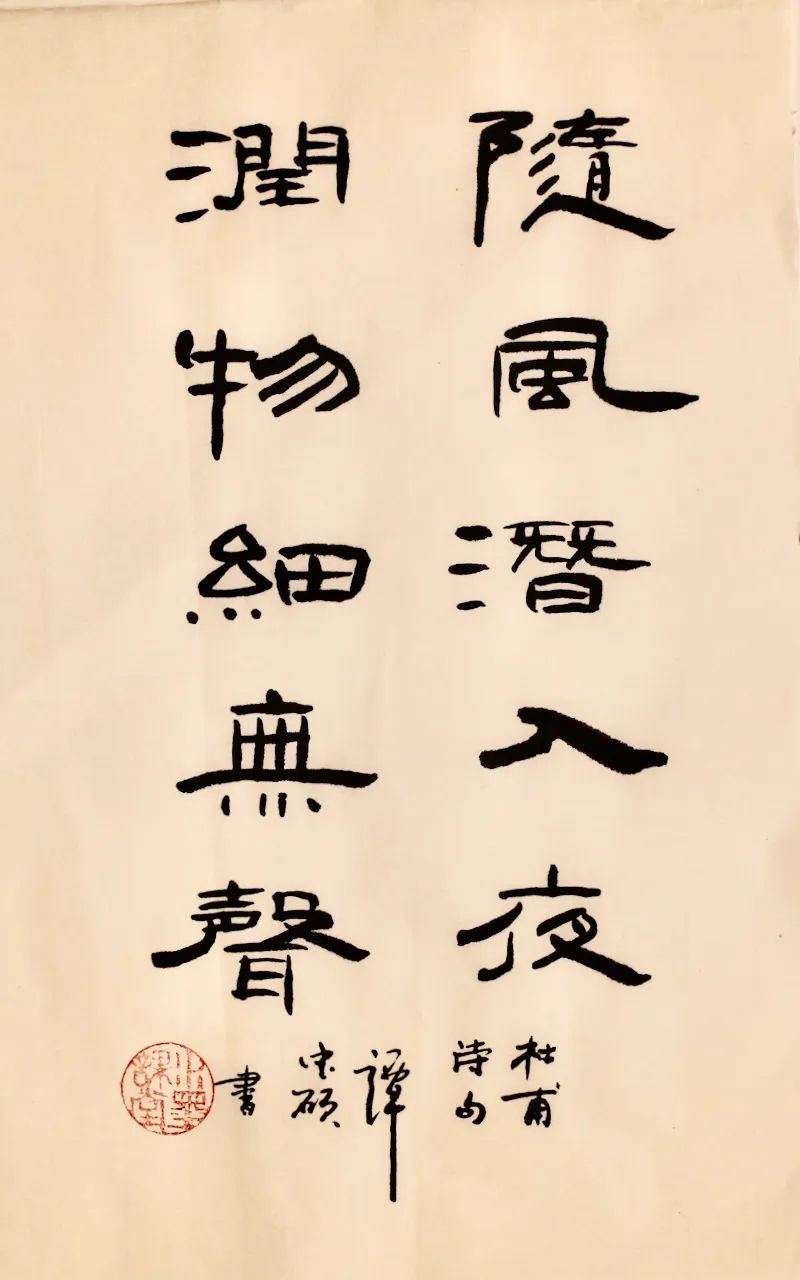 隨風潛入夜
潤物細無聲
杜甫
詩句
譚
宋碩
書